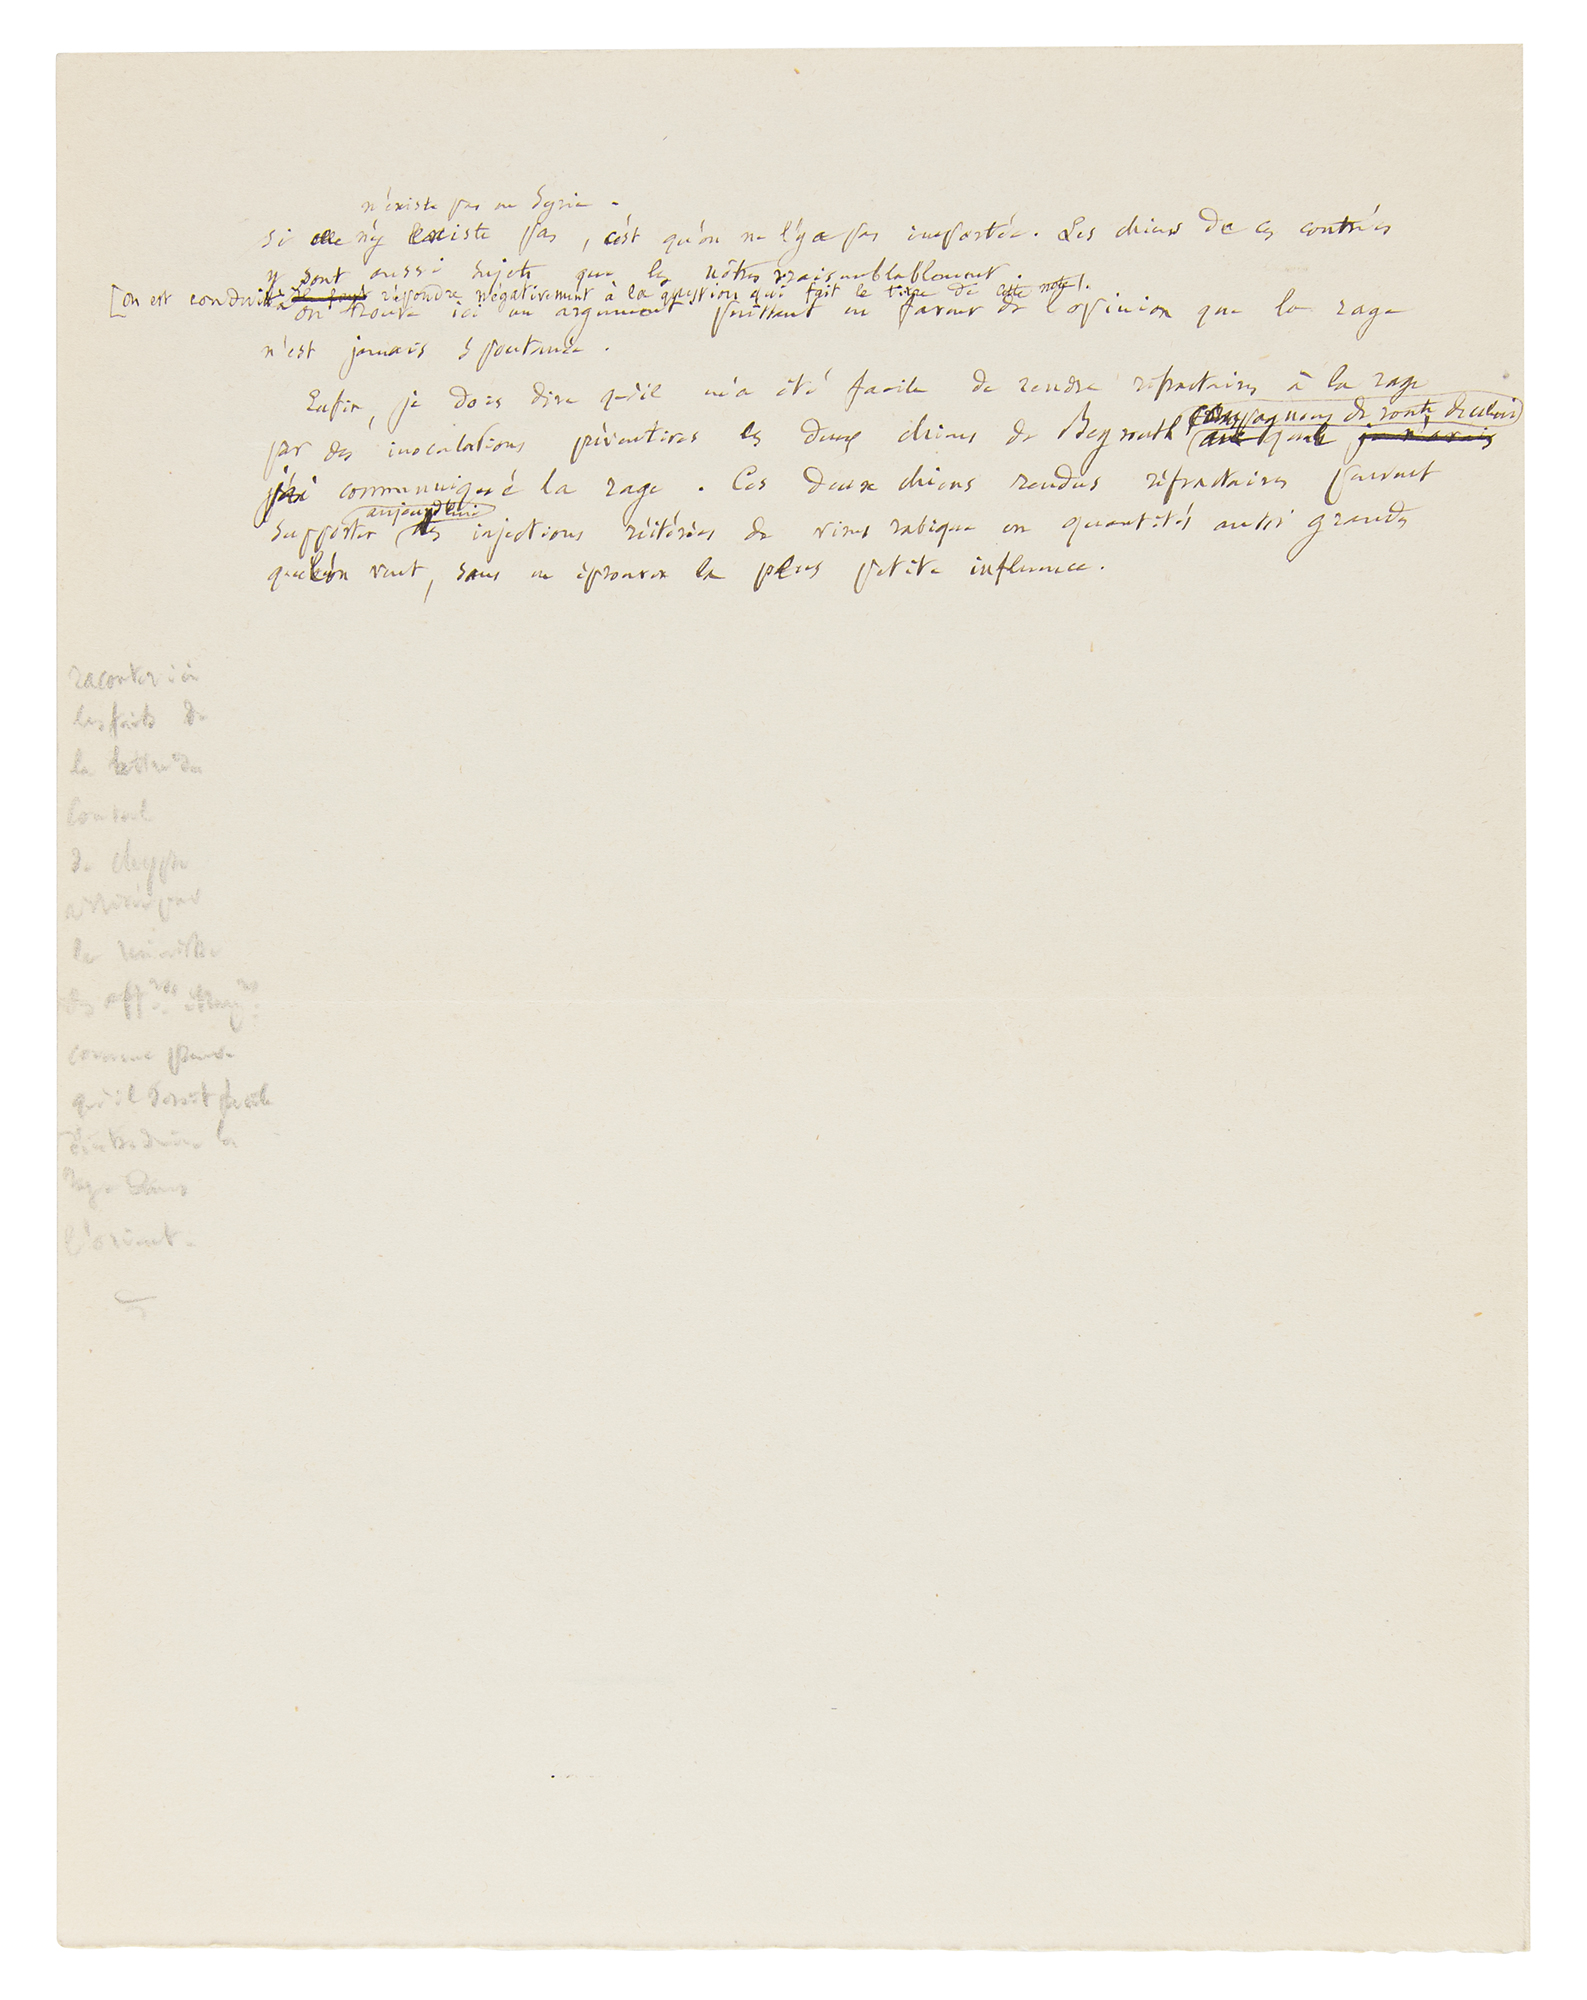 n'existe pas en Syrie.
Si elle n'y existe pas, c'est qu'on ne l'y a pas importée. Les chiens de ces contrées
y sont aussi sujets que les nôtres vraisemblablement.
[on est conduit à répondre négativement à la question qui fait le titre de cette note].
On trouve ici un argument puissant en faveur de l'opinion que la rage
n'est jamais spontanée.
Enfin, je dois dire qu'il m'a été facile de rendre réfractaires à la rage
compagnons de route de celui
par des inoculations préventives les deux chiens de Beyrouth auquel je n'avais
j'ai communiqué la rage. Ces deux chiens rendus réfractaires peuvent
aujourd'hui
supporter des injections réitérées de virus rabique en quantités aussi grandes
que l'on veut, sans en éprouver la plus petite influence.
raconter ici
les faits de
la lettre du
Consul
de Chypre
par
le ministre
des aff.res étrang.res
comme preuve
qu'il serait facile
d'introduire la
rage dans
l'orient.